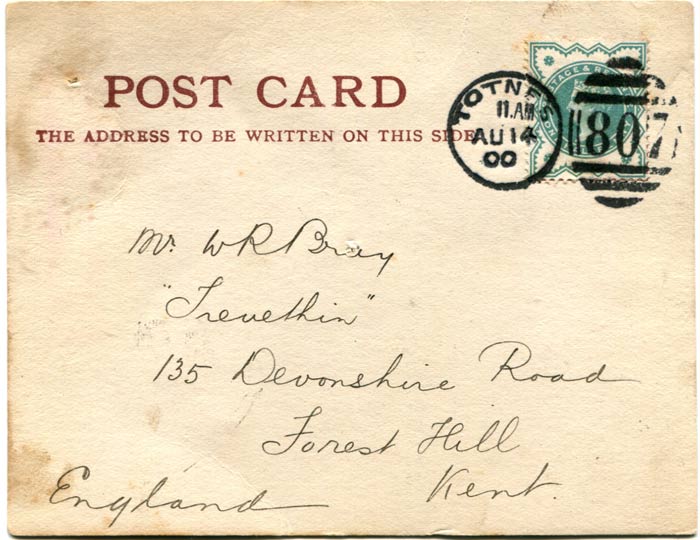 POST CARD
THE ADDRESS TO BE WRITTEN ON THIS SIDE
TOTNES
11.AM
AU 14
00
807
Mr. W R Bray
"Trevethin"
135 Devonshire Road
Forest Hill
Kent.
England